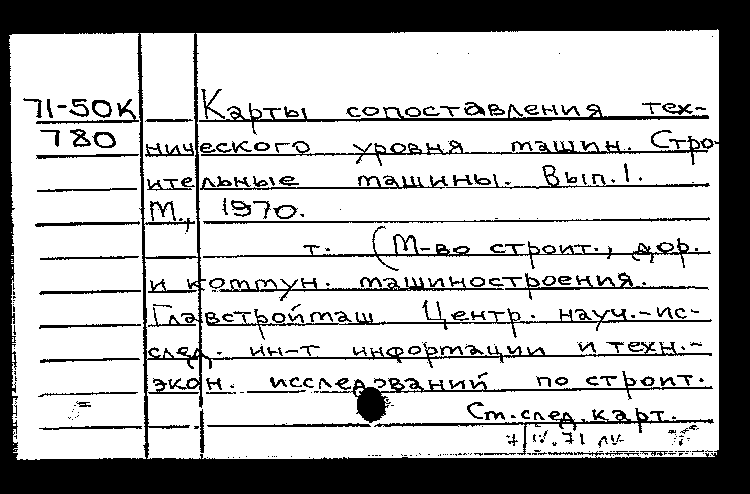 71-50К Карты сопоставления тех-
780 нического уровня машин. Стро-
ительные машины. Вып. 1.
М., 1970.
т. (М-во строит., дор.
и коммун. машиностроения.
Главстроймаш Центр. науч.-ис-
след. ин-т информации и техн.-
экон. исследований по строит.
См. след. карт.
7/IV.71